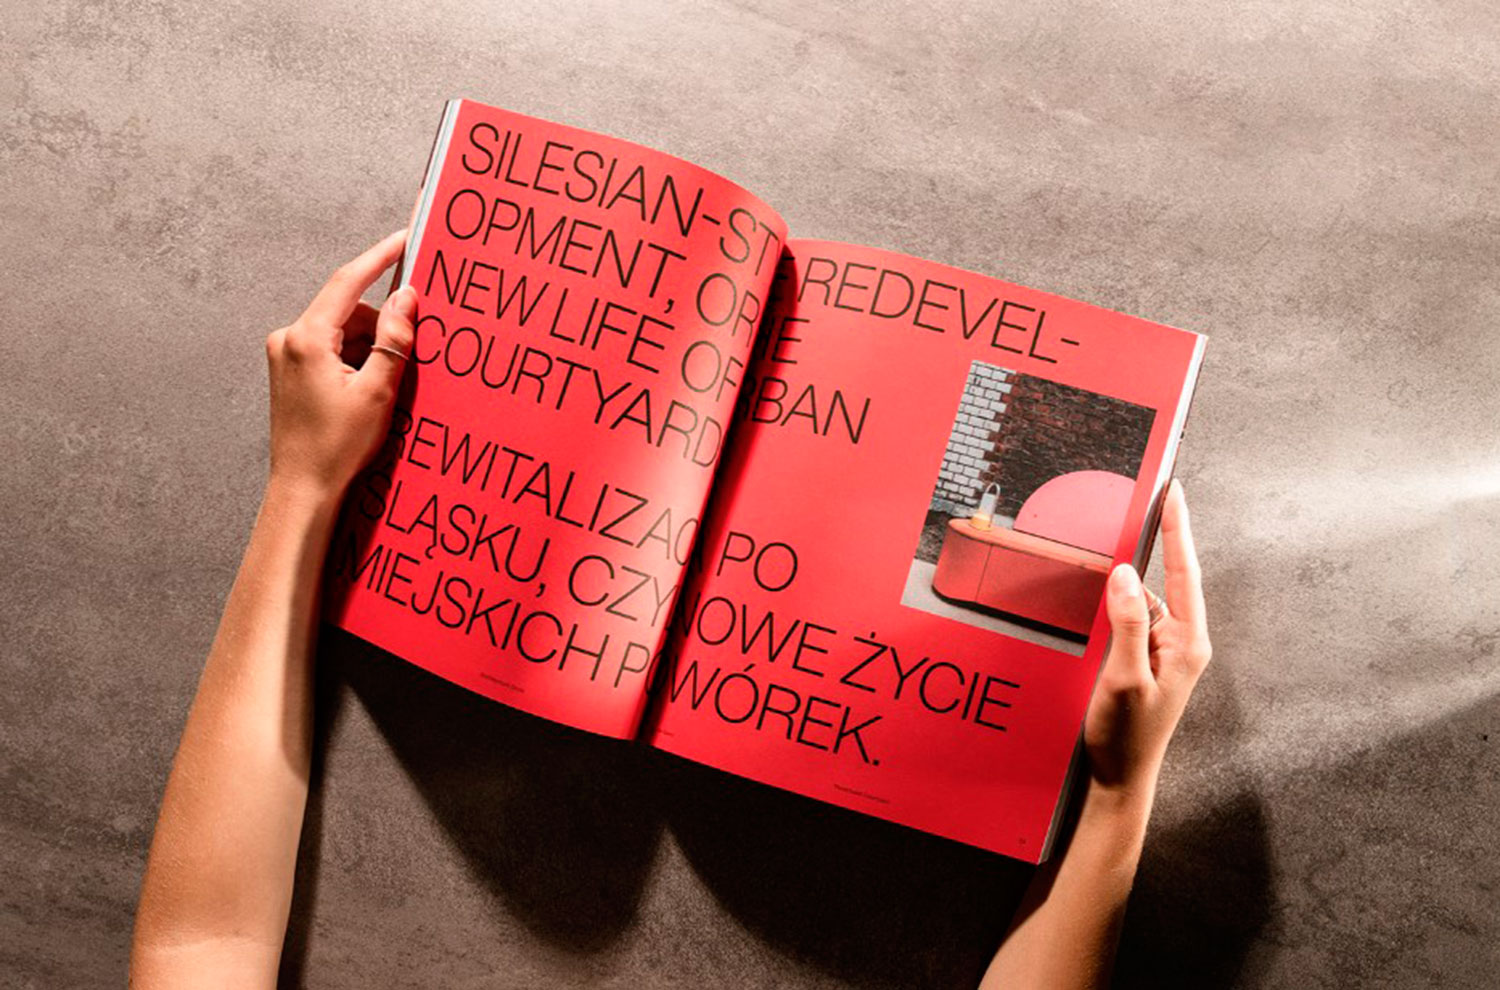 SILESIAN-STYLE REDEVEL-
OPMENT, OR THE
NEW LIFE OF URBAN
COURTYARD
REWITALIZACJA PO
ŚLĄSKU, CZYLI NOWE ŻYCIE
MIEJSKICH PODWÓREK.